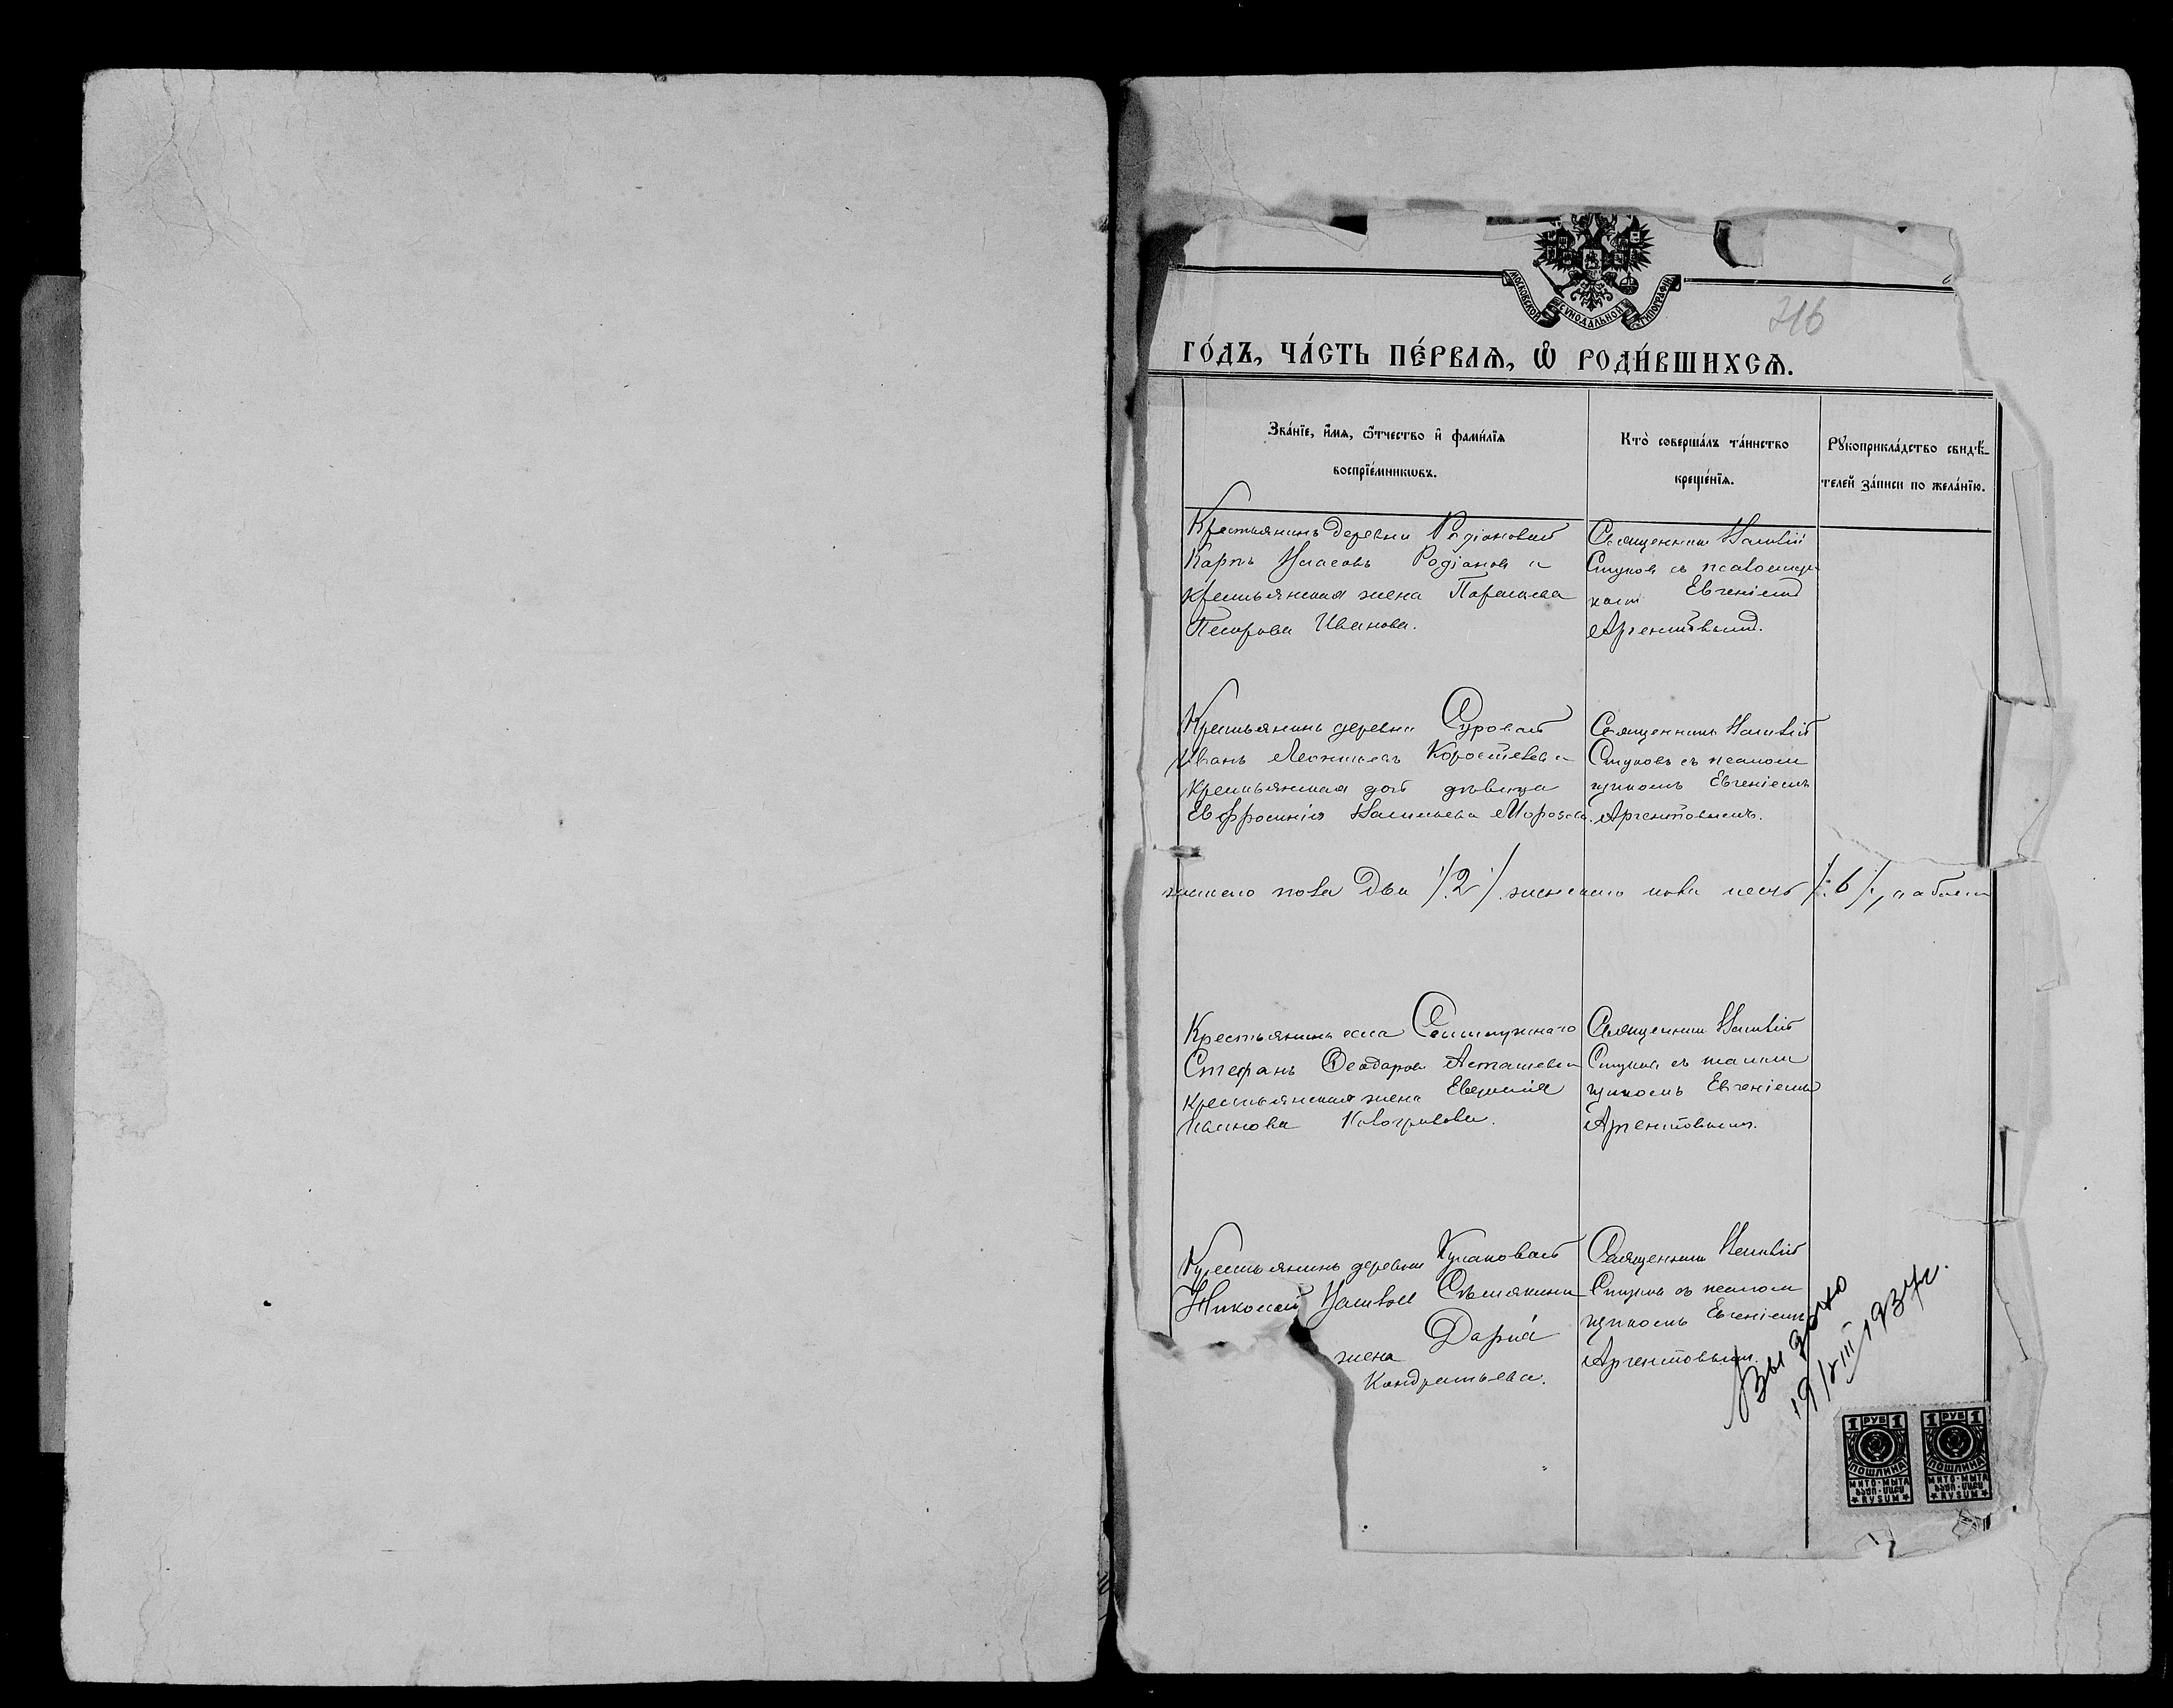 МОСКОВСКОЙ СѴНОДАЛЬНОЙ ТИПОГРАФІИ
216
ГО́ДЪ, ЧА́СТЬ ПЕ́РВАѦ, Ѡ҆ РОДИ́ВШИХСѦ.
Зва́нїе, и҆́мѧ, ѻ҆́тчество и҆ фами́лїѧ
воспрїе́мникѡвъ.
Кто̀ соверша́лъ та́инство
креще́нїѧ.
Рꙋкоприкла́дство свидѣ́-
телей за́писи по жела́нїю.
Крестьянинъ деревни Родіоновой
Карпъ Власовъ Родіоновъ и
крестьянская жена Параскева
Петрова Иванова.
Священникъ
Стуковъ съ псаломщи-
комъ Евгеніемъ
Аргентовымъ.
Крестьянинъ деревни Суровой
Иванъ Леонтьевъ Коростелевъ и
крестьянская доч дѣвица
Евфросинія Васильева Морозова.
Священникъ
Стуковъ съ псалом
щикомъ Евгеніемъ
Аргентовымъ.
пола два /:2:/ женскаго пола шесть /:6:/, а обоего
Крестьянинъ села
Стефанъ Ѳеодоровъ Асташевъ и
крестьянская жена Евдокія
Священникъ
Стуковъ съ псалом
щикомъ Евгеніемъ
Аргентовымъ.
Крестьянинъ деревни Кулаковой
Николай
жена Дарія
Кондратьева.
Священникъ
Стуковъ съ псалом
щикомъ Евгеніемъ
Аргентовымъ.
Выдано
19/VIII 1937г.
1 РУБ 1
ПОШЛИНА
МИТО-МЫТА
RYSUM
1 РУБ 1
ПОШЛИНА
МИТО-МЫТА
RYSUM